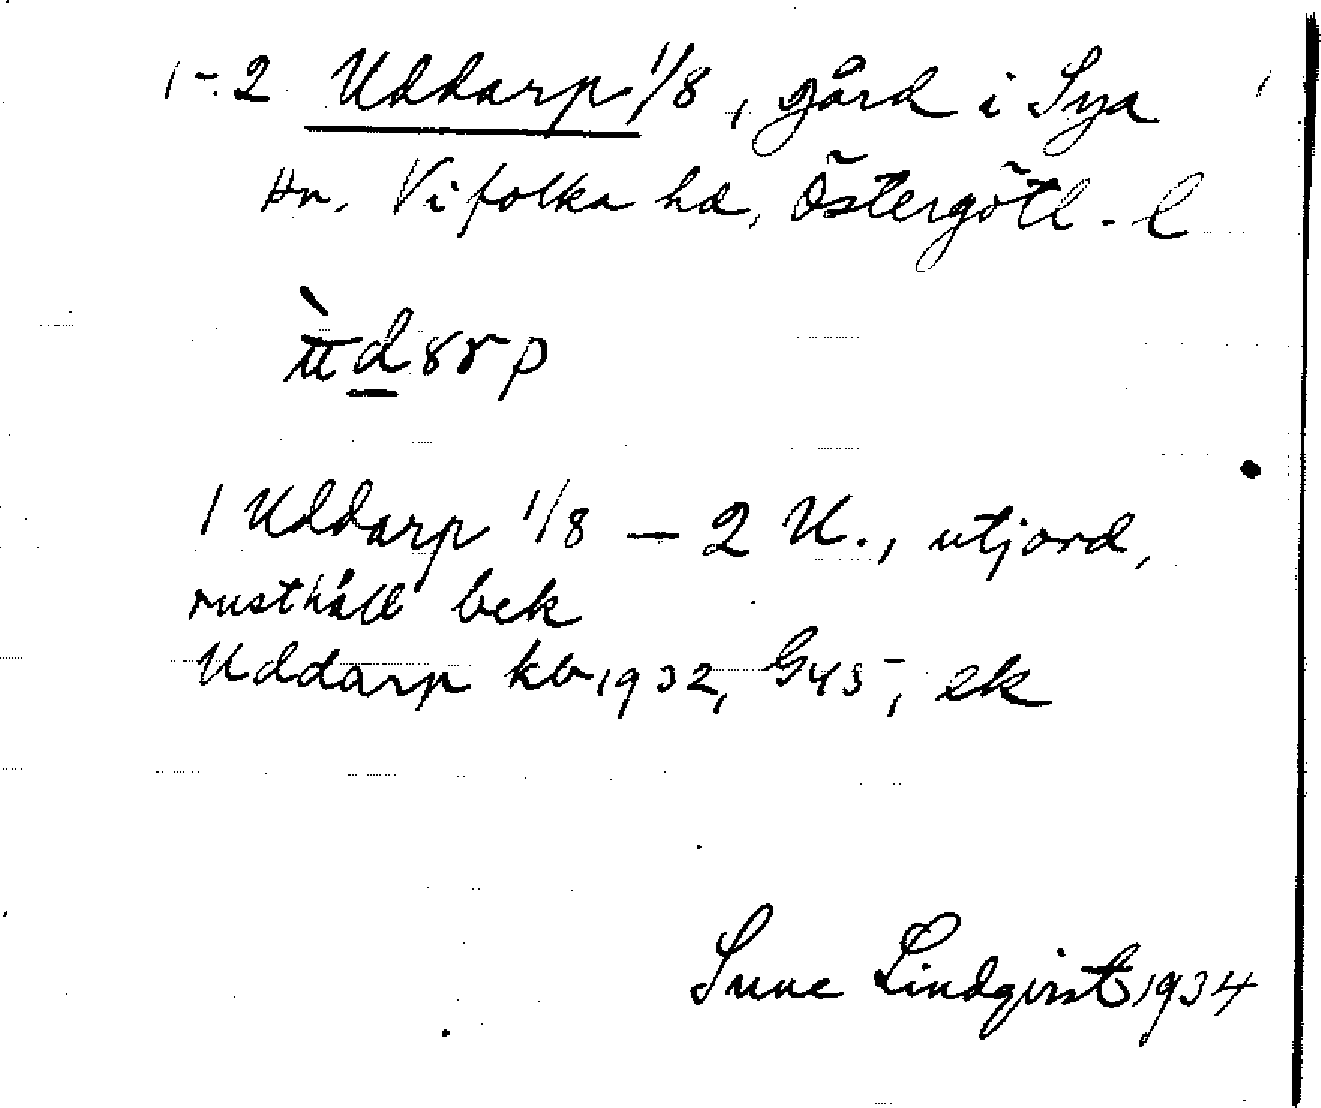 1-2 Uddarp 1/8, gård i Sya
sn. Vifolka hd, Östergötl. l
1 Uddarp 1/8 — 2 U., utjord,
rusthåll bek
Uddarp kb 1932, G45, ek
Sune Lindqvist 1934